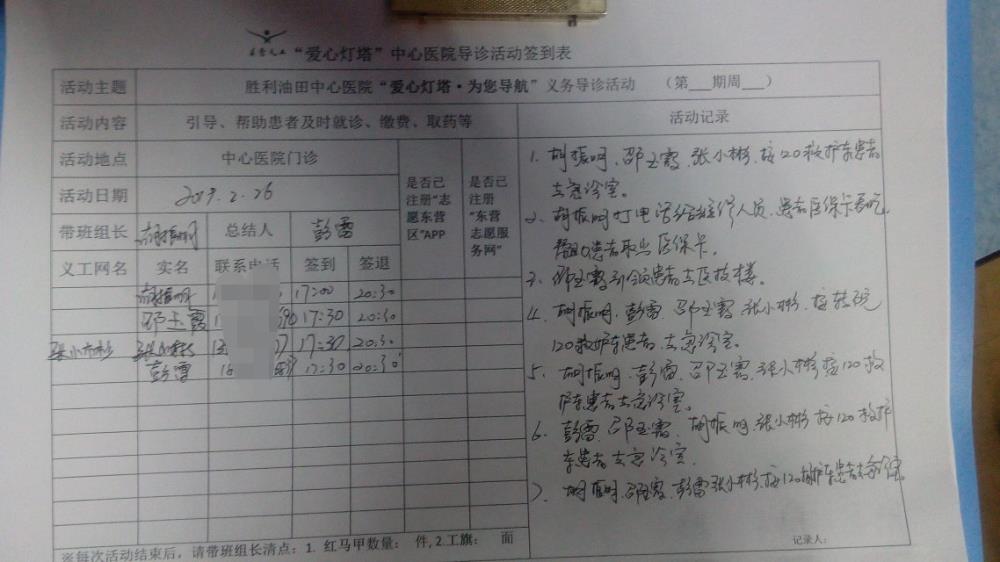 “爱心灯塔”中心医院导诊活动签到表
活动主题 胜利油田中心医院“爱心灯塔·为您导航”义务导诊活动 （第___期周___）
活动内容 引导、帮助患者及时就诊、缴费、取药等 活动记录
活动地点 中心医院门诊
活动日期 2019.2.26
是否已注册“志愿东营区”APP
是否已注册“东营志愿服务网”
带班组长 胡振明 总结人 彭雷
义工网名 实名 联系电话 签到 签退
胡振明 17:00 20:30
邵玉霞 17:30 20:30
张小彬 张小彬 17:30 20:30
彭雷 17:30 20:30
1. 胡振明、邵玉霞、张小彬、接120救护车患者
去急诊室。
2、胡振明打电话给维修人员、患者医保卡
患者取出医保卡。
3、邵玉霞引领患者去医技楼。
4、胡振明、彭雷、邵玉霞、张小彬、接转院
120救护车患者、去急诊室。
5、胡振明、彭雷、邵玉霞、张小彬接120救
护车患者去急诊室。
6、彭雷、邵玉霞、胡振明、张小彬接120救护
车患者去急诊室
7、胡振明、邵玉霞、彭雷张小彬、接120救护车患者去
※每次活动结束后，请带班组长清点：1. 红马甲数量： 件, 2.工旗： 面
记录人：